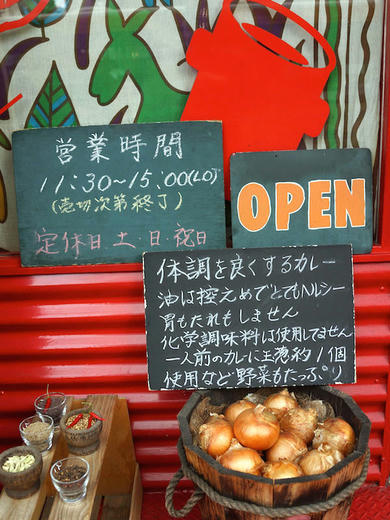 営業時間
11:30~15:00(LO)
(売切次第終了)
定休日 土・日・祝日
OPEN
体調を良くするカレー
油は控えめでとてもヘルシー
胃もたれもしません
化学調味料は使用してません
一人前のカレーに玉葱約1個
使用など野菜もたっぷり